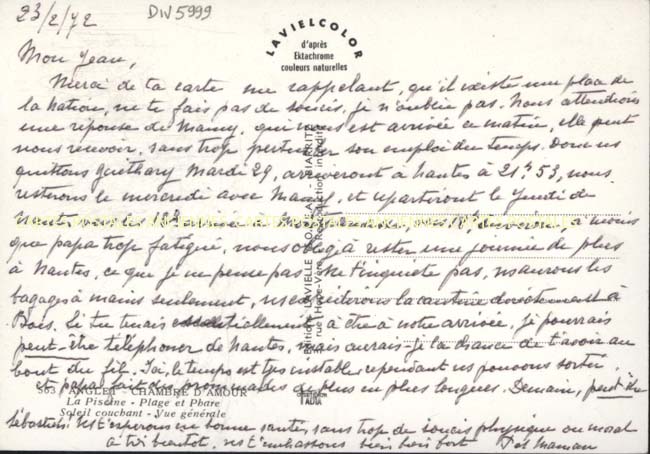 23/2/72
DW5999
LAVIELCOLOR
d'après
Ektachrome
couleurs naturelles
Mon Jean,
Merci de ta carte me rappelant, qu'il existe une place de
la Nation, ne te fais pas de soucis, je n'oublie pas. Nous attendions
une réponse de Mamy, qui nous est arrivée ce matin, elle peut
nous recevoir, sans trop perturber son emploi du temps. Donc ns
quittons Guéthary Mardi 29, arriverons à Nantes à 21h53, nous
resterons le mercredi avec Mamy, et repartirons le Jeudi de
Nantes vers à moins
que papa trop fatigué, nous oblige à rester une journée de plus
à Nantes, ce que je ne pense pas. Ne t'inquiete pas, ns aurons les
bagages à mains seulement, ns la cantine directement à
Bois. Si tu tenais essentiellement à être à notre arrivée, je pourrais
peut-être téléphoner de Nantes, mais aurais-je la chance de t'avoir au
bout du fil. Ici, le temps est très instable, cependant ns pouvons sortir,
et papa fait des promenades de plus en plus longues. Demain, peut être
563 / ANGLET - CHAMBRE D'AMOUR
La Piscine - Plage et Phare
Soleil couchant - Vue générale
Sébastien. Ns t'espérons en bonne santé, sans trop de soucis physique ou moral
à toi bientot, ns t'embrassons bien bien fort Maman